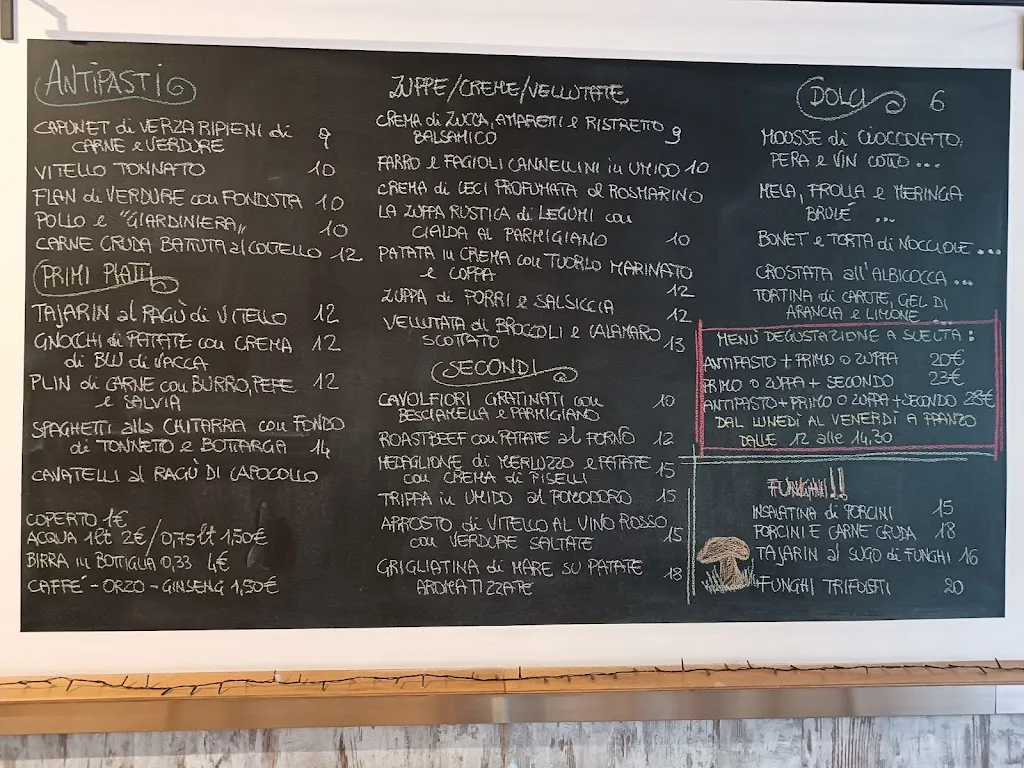 ANTIPASTI
CAPONET di VERZA RIPIENI di 9
CARNE e VERDURE
VITELLO TONNATO 10
FLAN di VERDURE con FONDUTA 10
POLLO e "GIARDINIERA" 10
CARNE CRUDA BATTUTA al COLTELLO 12
PRIMI PIATTI
TAJARIN al RAGÙ di VITELLO 12
GNOCCHI di PATATE con CREMA 12
di BLU di VACCA
PLIN di CARNE con BURRO, PEPE 12
e SALVIA
SPAGHETTI alla CHITARRA con FONDO
di TONNETO e BOTTARGA 14
CAVATELLI al RAGÙ DI CAPOCOLLO
COPERTO 1€
ACQUA 1lt 2€/0,75lt 1,50€
BIRRA in BOTTIGLIA 0,33 4€
CAFFÉ - ORZO - GINSENG 1,50€
ZUPPE/CREME/VELLUTATE
CREMA di ZUCCA, AMARETTI e RISTRETTO 9
BALSAMICO
FARRO e FAGIOLI CANNELLINI in UMIDO 10
CREMA di CECI PROFUMATA al ROSMARINO
LA ZUPPA RUSTICA di LEGUMI con
CIALDA AL PARMIGIANO 10
PATATA in CREMA con TUORLO MARINATO
e COPPA 12
ZUPPA di PORRI e SALSICCIA 12
VELLUTATA di BROCCOLI e CALAMARO
SCOTTATO 13
SECONDI
CAVOLFIORI GRATINATI con 10
BESCIAMELLA e PARMIGIANO
ROASTBEEF con PATATE al FORNO 12
MEDAGLIONE di MERLUZZO e PATATE 15
con CREMA di PISELLI
TRIPPA in UMIDO al POMODORO 15
ARROSTO di VITELLO AL VINO ROSSO 15
con VERDURE SALTATE
GRIGLIATINA di MARE SU PATATE 18
AROMATIZZATE
DOLCI 6
MOUSSE di CIOCCOLATO,
PERA e VIN COTTO ...
MELA, FROLLA e MERINGA
BRULÉ ...
BONET e TORTA di NOCCIOLE ...
CROSTATA all'ALBICOCCA ...
TORTINA di CAROTE, GEL DI
ARANCIA e LIMONE ...
MENÙ DEGUSTAZIONE A SCELTA:
ANTIPASTO + PRIMO O ZUPPA 20€
PRIMO O ZUPPA + SECONDO 23€
ANTIPASTO + PRIMO O ZUPPA + SECONDO 28€
DAL LUNEDÌ AL VENERDÌ A PRANZO
DALLE 12 alle 14,30
FUNGHI!!
INSALATINA di PORCINI 15
PORCINI E CARNE CRUDA 18
TAJARIN al SUGO di FUNGHI 16
FUNGHI TRIFOLATI 20